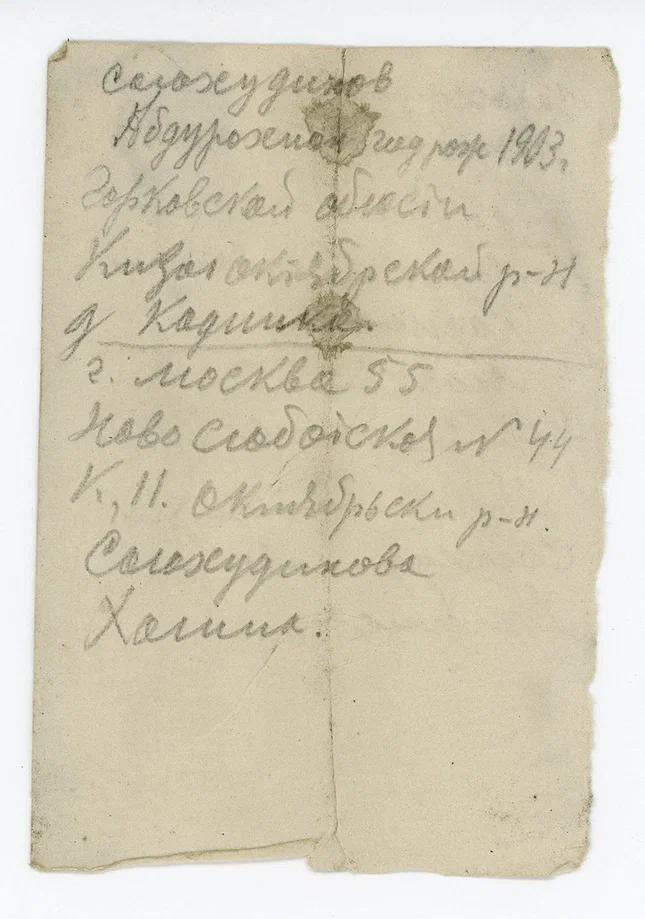 Салахудинов
Абдурохман год рож 1903г
Горковской области
Кизыл октябрской р-н
д Кадишка.
г. Москва 55
Ново Слободской N 44
К, 11. Октябрьски р-н.
Салахудинова
Халина.